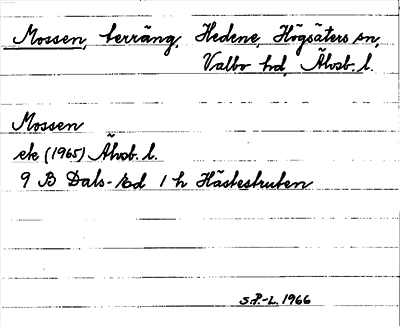 Mossen, terräng, Hedene, Högsäters sn,
Valbo hd, Älvsb. l.
Mossen
ek (1965) Älvsb. l.
9 B Dals-Ed 1 h Hästestruten
S.P.-L. 1966